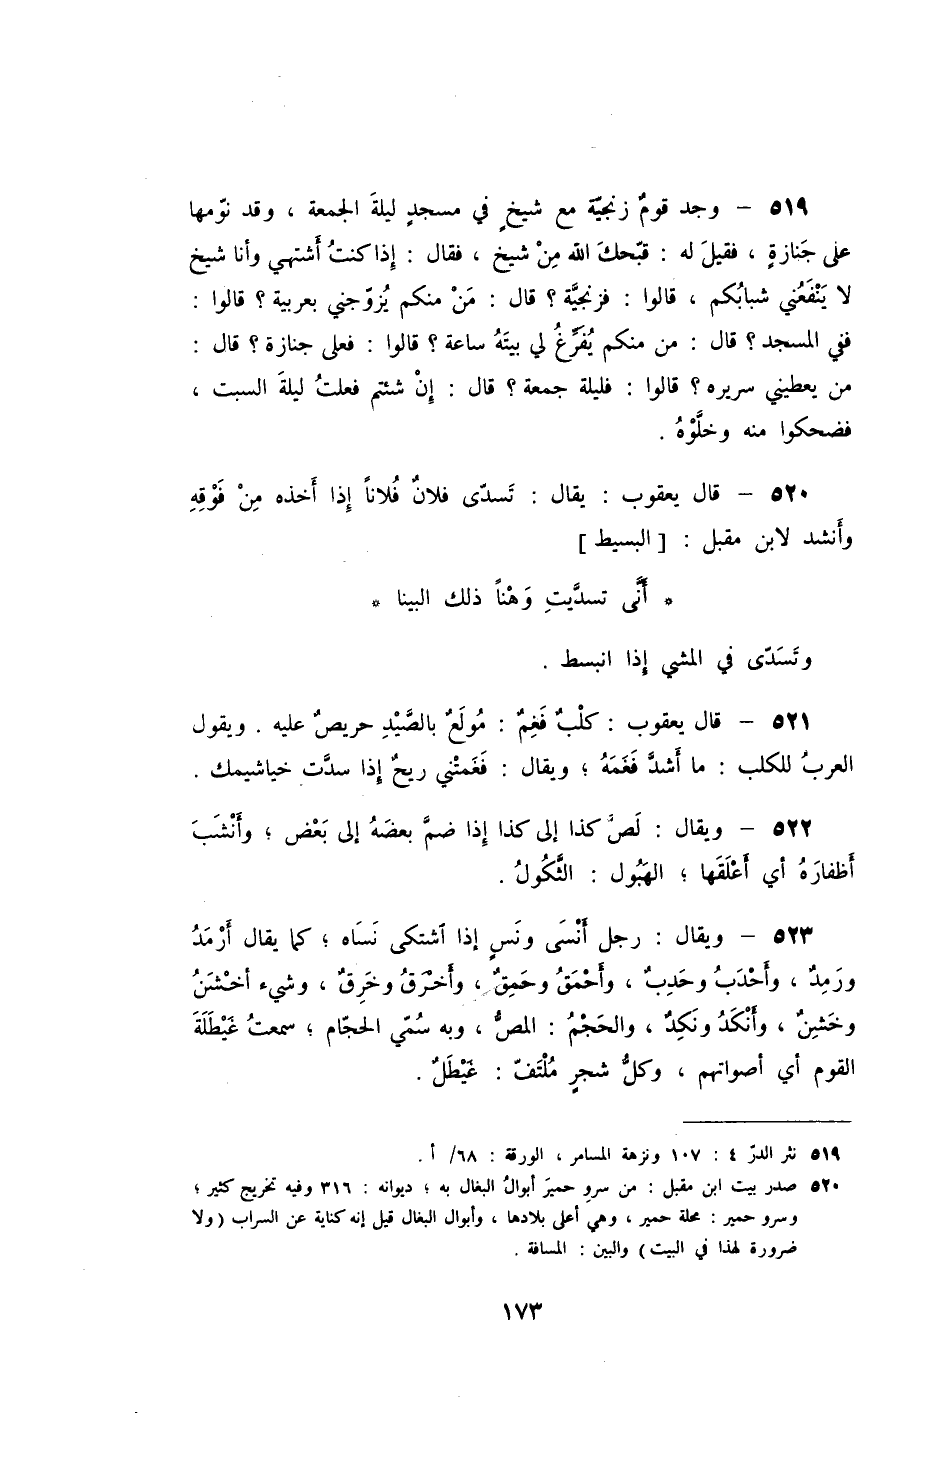 ٥١٩ – وجد قومٌ زنجيّة مع شيخٍ في مسجدٍ ليلةَ الجمعة ، وقد نوّمها
على جَنازةٍ ، فقيلَ له : قبّحكَ الله مِنْ شيخ ، فقال : إذا كنتُ أَشتهي وأنا شيخ
لا يَنْفَعُني شبابُكم ، قالوا : فزنجيَّة ؟ قال : مَنْ منكم يُزوّجني بعربية ؟ قالوا :
ففي المسجد ؟ قال : من منكم يُفَرِّغُ لي بيتَهُ ساعة ؟ قالوا : فعلى جنازة ؟ قال :
من يعطيني سريره ؟ قالوا : فليلة جمعة ؟ قال : إنْ شئتم فعلتُ ليلةَ السبت ،
فضحكوا منه وخلَّوْهُ .
٥٢٠ – قال يعقوب : يقال : تَسدّى فلانٌ فُلاناً إذا أَخذه مِنْ فَوْقِهِ
وأَنشد لابن مقبل : [ البسيط ]
* أَنَّى تسدَّيتِ وَهْناً ذلك البينا *
وتَسَدّى في المشي إذا انبسط .
٥٢١ – قال يعقوب : كلْبٌ فَغِمٌ : مُولَعٌ بالصَّيْدِ حريصٌ عليه . ويقول
العربُ للكلب : ما أَشدَّ فَغَمَهُ ؛ ويقال : فَغَمتْني ريحٌ إذا سدَّت خياشيمك .
٥٢٢ – ويقال : لَصَّ كذا إلى كذا إذا ضمَّ بعضَهُ إلى بَعْض ؛ وأَنْشَبَ
أظفارَهُ أي أَعْلَقَها ؛ الهَبُول : الثَّكُولُ .
٥٢٣ – ويقال : رجل أَنْسَى ونَسٍ إذا ٱشتكى نَسَاه ؛ كما يقال أَرْمَدُ
ورَمِدٌ ، وأَحْدَبُ وحَدِبٌ ، وأَحْمَقُ وحَمِقٌ ، وأَخْرَقُ وخَرِقٌ ، وشيء أخْشَنُ
وخَشِنٌ ، وأَنْكَدُ ونَكِدٌ ، والحَجْمُ : المصُّ ، وبه سُمّي الحجّام ؛ سمعتُ غَيْطَلَةَ
القوم أي أصواتهم ، وكلُّ شجرٍ مُلْتَفّ : غَيْطَلٌ .
٥١٩ نثر الدرّ ٤ : ١٠٧ ونزهة المسامر ، الورقة : ٦٨/ أ .
٥٢٠ صدر بيت ابن مقبل : من سروِ حميرَ أبوالُ البغال به ؛ ديوانه : ٣١٦ وفيه تخريج كثير ؛
وسرو حمير : محلة حمير ، وهي أعلى بلادها ، وأبوال البغال قيل إنه كناية عن السراب ( ولا
ضرورة لهذا في البيت ) والبين : المسافة .
١٧٣